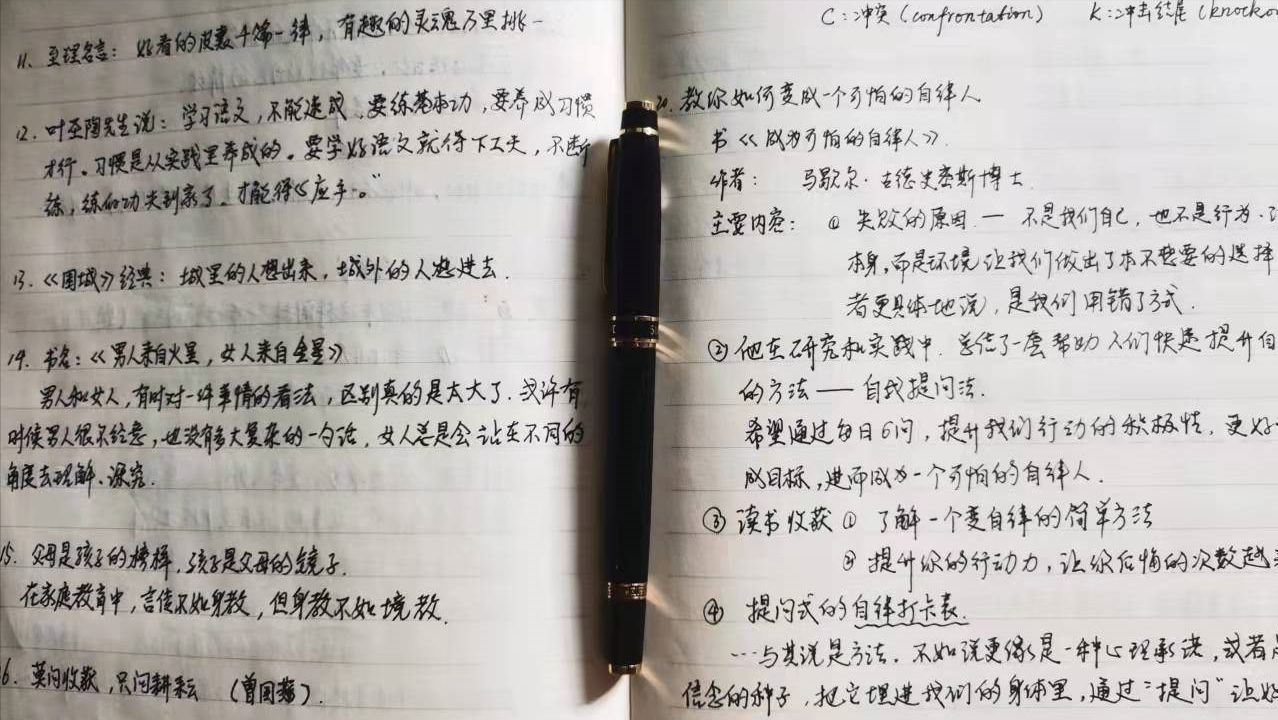 11、至理名言：好看的皮囊千篇一律，有趣的灵魂万里挑一
12. 叶圣陶先生说：学习语文，不能速成，要练基本功，要养成习惯
才行。习惯是从实践里养成的。要学好语文就得下工夫，不断
练，练的功夫到家了。才能得心应手。”
13.《围城》经典：城里的人想出来，城外的人想进去.
14. 书名：《男人来自火星，女人来自金星》
男人和女人，有时对一件事情的看法，区别真的是太大了. 或许有
时候男人很不经意，也没有多大复杂的一句话，女人总是会站在不同的
角度去理解、深究.
15. 父母是孩子的榜样，孩子是父母的镜子.
在家庭教育中，言传不如身教，但身教不如境教.
16. 莫问收获，只问耕耘 （曾国藩）.
C：冲突（confrontation） K：冲击结尾（knocko
20. 教你如何变成一个可怕的自律人
书《成为可怕的自律人》.
作者： 马歇尔·古德史密斯博士
主要内容： ① 失败的原因 — 不是我们自己，也不是行为
本身，而是环境让我们做出了本不想要的选择
者更具体地说，是我们用错了方式.
② 他在研究和实践中. 总结了一套帮助人们快速提升自
的方法 —— 自我提问法.
希望通过每日6问，提升我们行动的积极性. 更好
成目标，进而成为一个可怕的自律人.
③ 读书收获 ① 了解一个变自律的简单方法
② 提升你的行动力，让你后悔的次数越
④ 提问式的自律打卡表.
…与其说是方法. 不如说更像是一种心理承诺，或者
信念的种子，把它埋进我们的身体里，通过“提问”让